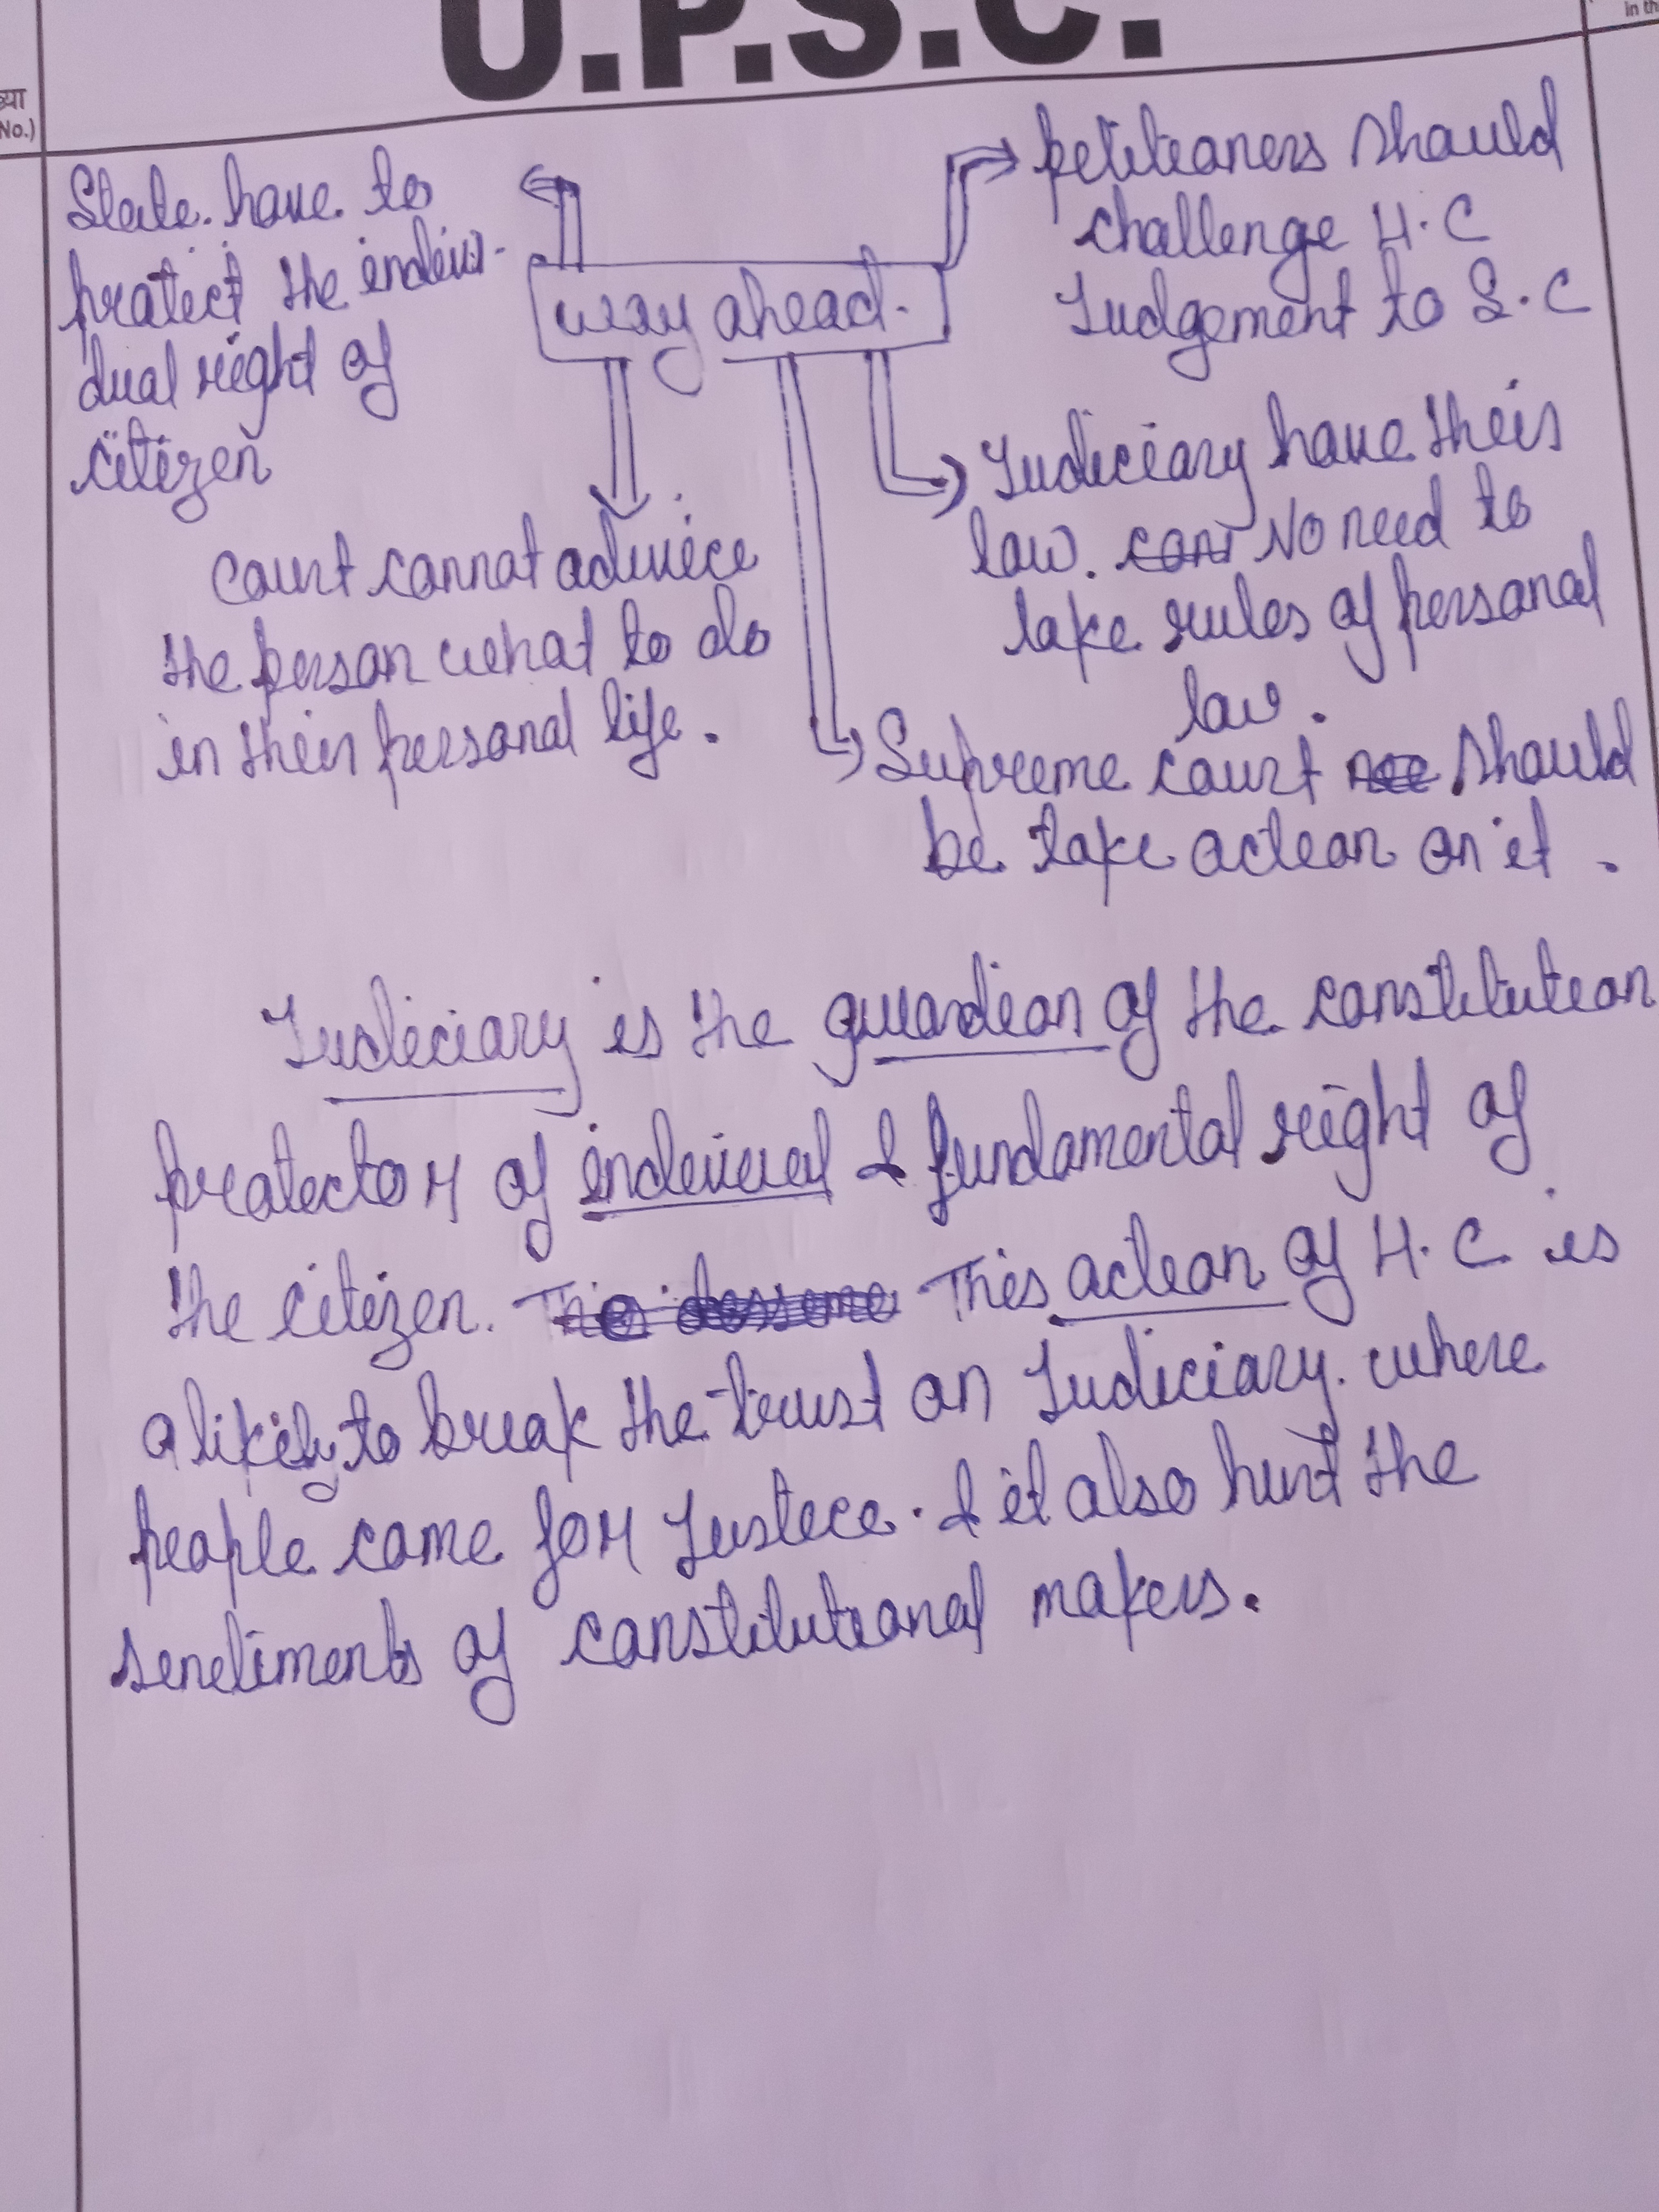 U.P.S.C.
in th
ख्या
No.)
State have to
protect the indivi-
dual right of
citizen
way ahead.
petitioners should
challenge H.C
Judgement to S.C
Judiciary have their
law. No need to
take rules of personal
law.
Court cannot advice
the person what to do
in their personal life.
Supreme court should
be take action on it.
Judiciary is the guardian of the constitution
protector of indiviual & fundamental right of
the citizen. This action of H.C is
alikely to break the trust on Judiciary. where
people come for Justice. & it also hurt the
sentiments of constitutional makers.